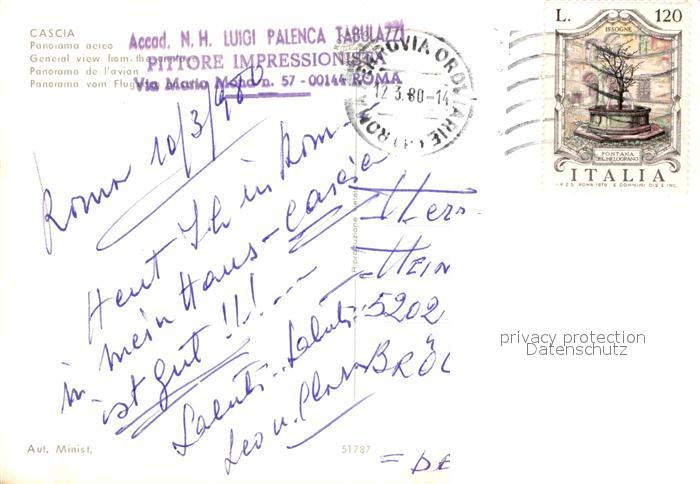 CASCIA
Panorama aereo
General view from the
Panorama de l'avion
Panorama vom Flug
Accad. N. H. LUIGI PALENCA TABULAZZI
PITTORE IMPRESSIONISTA
Via Mario Mona n. 57 - 00144 ROMA
ROMA FERROVIA ORDINARIE
12.3.80-14
L. 120
ISSOGNE
FONTANA
DEL MELOGRANO
ITALIA
I.P.Z.S. ROMA 1978 E. DONNINI DIS. E INC.
Roma 10/3/980
Heut Ich in Rom -
in mein Haus - Cascia
ist gut!!! ---
Saluti.. Saluti:
Leo u.
Herr
HEIN
5202
BRÖL
= DE
Riproduzione vietata
privacy protection
Datenschutz
Aut. Minist.
51787